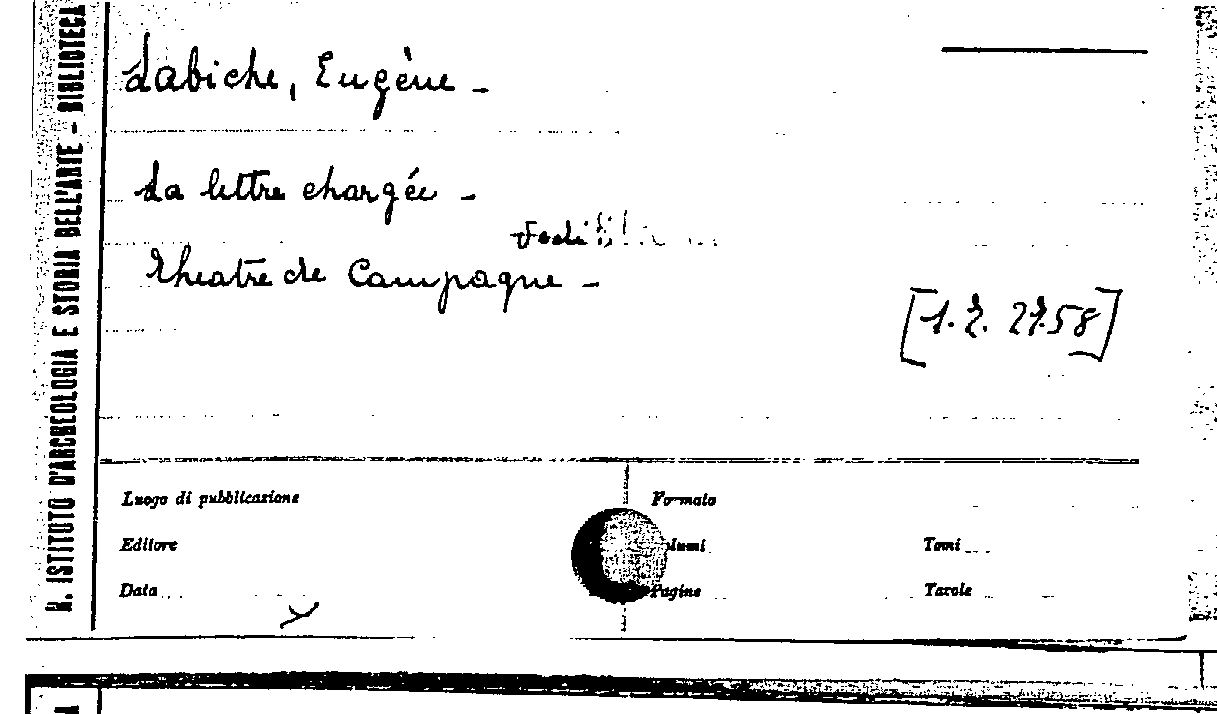 R. ISTITUTO D'ARCHEOLOGIA E STORIA DELL'ARTE - BIBLIOTECA
Labiche, Eugène -
La lettre chargée -
Vedi
Theatre de Campagne -
[1. 2. 27.58]
Luogo di pubblicazione
Formato
Editore
Tomi
Data
Pagine
Tavole